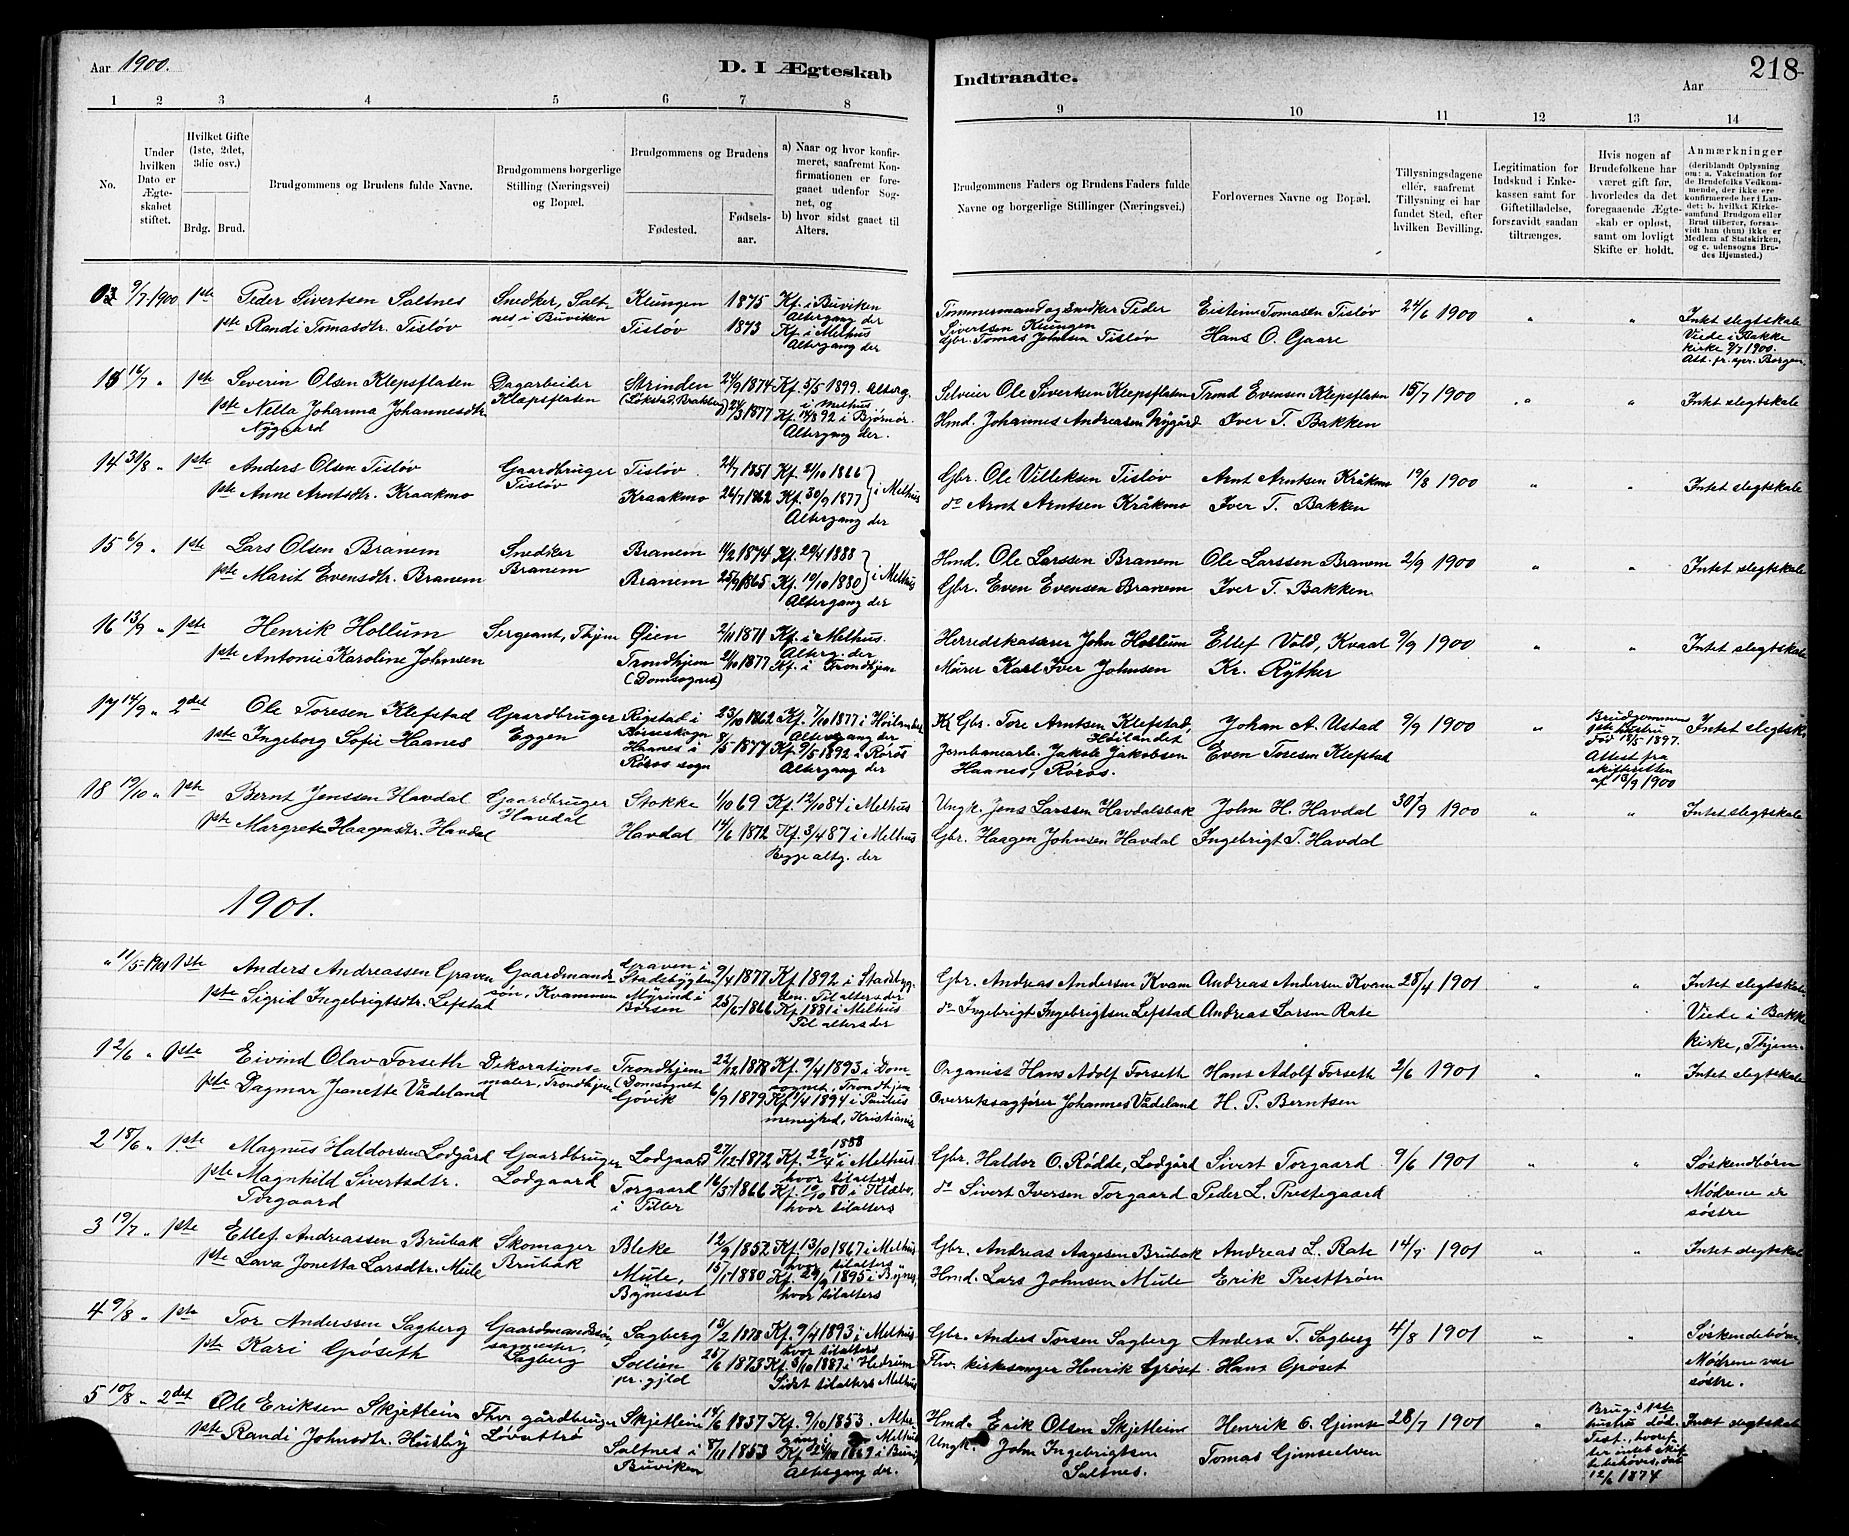 Aar 1900.
D. I Ægteskab
Indtraadte.
218
Aar
1 2 3 4 5 6 7 8 9 10 11 12 13 14
No.
Under hvilken Dato er Ægteskabet stiftet.
Hvilket Gifte (1ste, 2det, 3die osv.)
Brdg. Brud.
Brudgommens og Brudens fulde Navne.
Brudgommens borgerlige Stilling (Næringsvei) og Bopæl.
Brudgommens og Brudens
Fødested.
Fødselsaar.
a) Naar og hvor konfirmeret, saafremt Konfirmationen er foregaaet udenfor Sognet, og
b) hvor sidst gaaet til Alters.
Brudgommens Faders og Brudens Faders fulde Navne og borgerlige Stillinger (Næringsvei.)
Forlovernes Navne og Bopæl.
Tillysningsdagene eller, saafremt Tillysning ei har fundet Sted, efter hvilken Bevilling.
Legitimation for Indskud i Enkekassen samt for Giftetilladelse, forsaavidt saadan tiltrænges.
Hvis nogen af Brudefolkene har været gift før, hvorledes da det foregaaende Ægteskab er opløst, samt om lovligt Skifte er holdt.
Anmærkninger
(deriblandt Oplysning om: a. Vakcination for de Brudefolks Vedkommende, der ikke ere konfirmerede her i Landet; b. hvilket Kirkesamfund Brudgom eller Brud tilhører, forsaavidt han (hun) ikke er Medlem af Statskirken, og c. udensogns Brudes Hjemsted.)
9/7 1900 1ste Peder Sivertsen Saltnes Snedker, Saltnes i Buviken Klungen 1875 Kf. i Buviken Altergang der Tømmermand og Snedker Peder Sivertsen Klungen Eistein Tomasen Tisløv 24/6 1900 " " Intet slegtskab
1ste Randi Tomasdtr. Tisløv Tisløv 1873 Kf. i Melhus Altergang der Gbr. Tomas Johnsen Tisløv Hans O. Gaare Viede i Bakke kirke 9/7 1900.
16/7 " 1ste Severin Olsen Klepsflaten Dagarbeider Klæpsflaten Strinden 24/9 1874 Kf. 5/5 1899. Alterg. i Melhus Selveier Ole Sivertsen Klepsflaten Trond Evensen Klepsflaten 15/7 1900 " " Intet slegtskab
1ste Nella Johanna Johannesdtr. Nygaard 1877 i Bjørnør. Altergang der. Hmd. Johannes Andreasen Nygård Iver T. Bakken
14 31/8 " 1ste Anders Olsen Tisløv Gaardbruger Tisløv Tisløv 24/7 1851 Kf. 21/10 1866 i Melhus Gbr. Ole Villeksen Tisløv Arnt Arntsen Kråkmo 19/8 1900 " " Intet slegtskab
1ste Anne Arntsdtr. Kraakmo Kraakmo 26/7 1862 Kf. 30/9 1877 Altergang der do Arnt Arntsen Kråkmo Iver T. Bakken
15 6/9 " 1ste Lars Olsen Branem Snedker Branem Branem 11/2 1874 Kf. 29/4 1888 i Melhus Hmd. Ole Larssen Branem Ole Larssen Branem 2/9 1900 " " Intet slegtskab
1ste Marit Evensdtr. Branem Branem 25/9 1865 Kf. 10/10 1880 Altergang der Gbr. Even Evensen Branem Iver T. Bakken
16 13/9 " 1ste Henrik Hollum Sergeant, Thjem Øien 2/11 1871 Kf. i Melhus. Alterg. der Herredskaserer John Hollum Ellef Vold, Kvaal 9/9 1900 " " Intet slegtskab
1ste Antonie Karoline Johnsen Trondhjem (Domsognet) 21/10 1877 Kf. i Trondhjem Murer Karl Iver Johnsen Kr. Rytker
17 14/9 " 2det Ole Toresen Klefstad Gaardbruger Eggen Rigstad i Børseskogn 23/10 1862 Kf. 7/10 1877 i Høilandet Altergang der Gbr. Tore Arntsen Klefstad, Høilandet Johan A. Ustad 9/9 1900 " Brudgommens 1ste hustru død 18/5 1897. Attest fra skifteretten af 13/9 1900 Intet slegtsk.
1ste Ingeborg Sofie Haanes Haanes i Røros sogn 8/5 1877 Kf. 9/5 1892 i Røros Altergang der Jernbanearb. Jakob Jakobsen Haanes, Røros. Even Toresen Klefstad
18 19/10 " 1ste Bernt Jenssen Havdal Gaardbruger Havdal Stokke 1/10 69 Kf. 12/10 84 i Melhus Ungk. Jens Larssen Havdalsbak John H. Havdal 30/9 1900 " " Intet slegtskab
1ste Margrete Haagensdtr. Havdal Havdal 14/6 1872 Kf. 3/4 87 i Melhus Begge altg. der Gbr. Haagen Johnsen Havdal Ingebrigt T. Havdal
1901.
" 11/5 1901 1ste Anders Andreassen Graven Gaardmandssøn, Kvammen Graven i Stadsbygden 9/4 1877 Kf 1892 i Stadsbygden. Til alters der Gbr. Andreas Andersen Kvam Andreas Andersen Kvam 28/4 1901 " " Intet slegtskab
1ste Sigrid Ingebrigtsdtr. Lefstad Myrind i Børsen 25/6 1866 Kf 1881 i Melhus Til alters der do Ingebrigt Ingebrigtsen Lefstad Andreas Larsen Rate Viede i Bakke kirke, Thjem.
1 2/6 " 1ste Eivind Olav Forseth Dekorationsmaler, Trondhjem Trondhjem (Domsognet 22/12 1878 Kf. 9/4 1893 i Domsognet, Trondhjem Organist Hans Adolf Forseth Hans Adolf Forseth 2/6 1901 " " Intet slegtskab
1ste Dagmar Jeanette Vadeland Gjøvik 6/9 1879 Kf. 1/4 1894 i Paulus menighed, Kristiania Overretssagfører Johannes Vadeland H. P. Berntsen
2 18/6 " 1ste Magnus Haldorsen Lodgård Gaardbruger Lodgaard Lodgaard 27/12 1872 Kf. 22/4 1888 i Melhus. hvor tilalters Gbr. Haldor O. Rødde, Lodgård Sivert Torgaard 9/6 1901 " " Søskendbørn
1ste Magnhild Sivertsdtr. Torgaard Torgaard i Tiller 16/3 1866 Kf. 10/10 80 i Klæbo, hvor tilalters do Sivert Iversen Torgaard Peder L. Prestegaard Mødrene er søstre
3 19/7 " 1ste Ellef Andreassen Brubak Skomager Brubak Bleke 12/9 1852 Kf. 13/10 1867 i Melhus. hvor tilalters Gbr. Andreas Aagesen Brubak Andreas L. Rate 14/7 1901 " " Intet slegtskab
1ste Lava Jonetta Larsdtr. Mule Mule, Bynesset 15/1 1880 Kf. 29/9 1895 i Bynes, hvor tilalters Hmd. Lars Johnsen Mule Erik Presttrøen
4 9/8 " 1ste Tor Anderssen Sagberg Gaardmandssøn, sagmester, Sagberg Sagberg 13/2 1878 Kf. 9/4 1893 i Melhus hvor tilalters Gbr. Anders Torsen Sagberg Anders T. Sagberg 4/8 1901 " " Søskendebørn
1ste Kari Grøseth Sollien pr.gjld 25/6 1873 Kf. 3/10 1887 i Hedrum Sidst tilalters Melhus Fhv. kirksanger Henrik Grøset. Hans Grøset Mødrene var søstre.
5 10/8 " 2det Ole Eriksen Skjetlein Fhv. gårdbruger Løvsettrø Skjetlein 14/6 1837 Kf. 9/10 1853. Altergang i Melhus Hmd. Erik Olsen Skjetleim Henrik O. Gimse 28/7 1901 " Brug.s 1ste hustru død. Test., hvorefter intet skifte behøves, dat. 12/6 1874 Intet slegtskab
1ste Randi Johnsdtr. Husby Saltnes i Buviken 8/11 1853 Kf. 24/10 1869 i Buvik, Altergang der. Ungk. John Ingebrigtsen Saltnes. Tomas Gimseelven